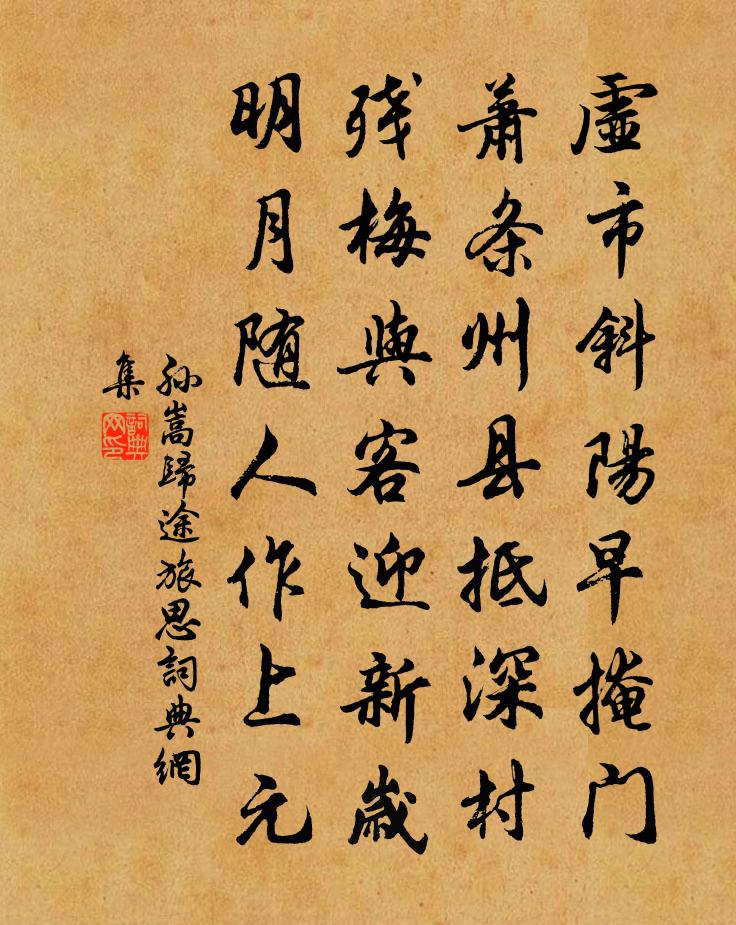 虚市斜陽早掩门
萧条州县抵深村
残梅與客迎新歲
明月随人作上元
孙嵩歸途旅思詞典網
集
詞典网印